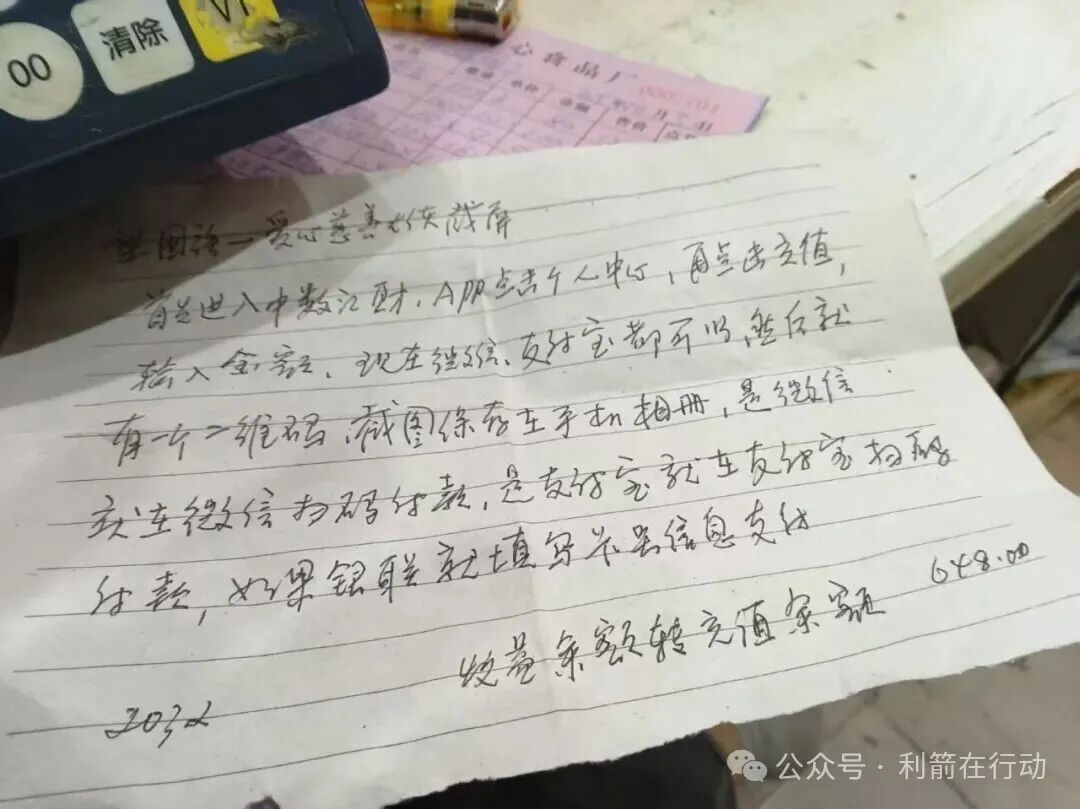 00
清除
心食品厂
单价
金额
爱心慈善大使截屏
首先进入中数汇财，APP点击个人中心，再点击充值，
输入金额，现在微信、支付宝都可以，然后就
有一个二维码，截图保存在手机相册，是微信
就在微信扫码付款，是支付宝就在支付宝扫码
付款，如果银联就填写卡号信息支付
648.00
收益余额转充值余额
2032
公众号·利箭在行动